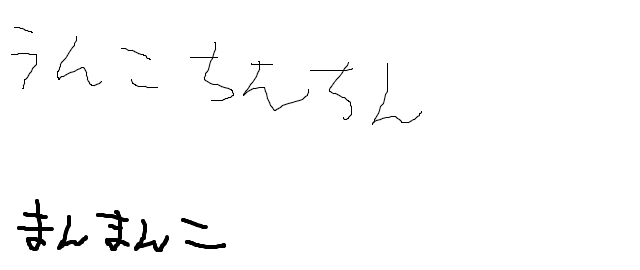 うんこちんちん
まんまんこ